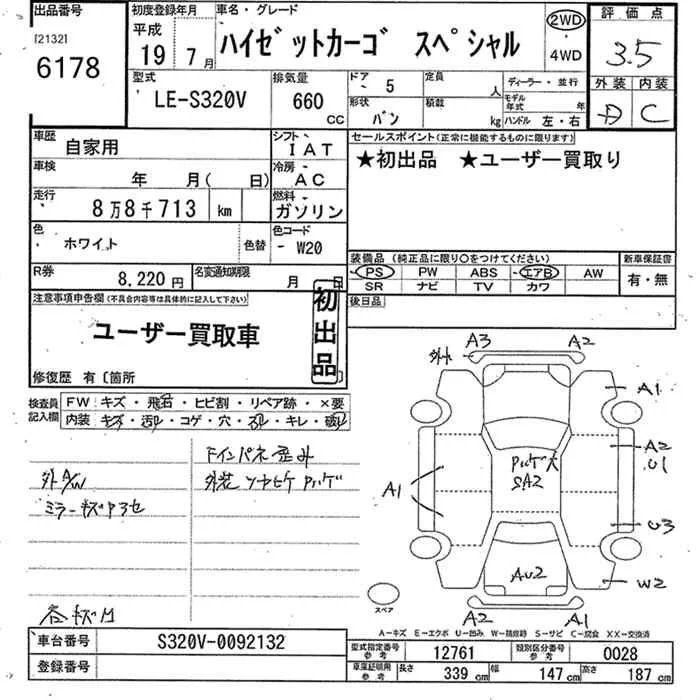 出品番号
[2132]
6178
初度登録年月
平成
19年 7月
車名・グレード
ハイゼットカーゴ スペシャル
2WD
・
4WD
評価点
3.5
外装 内装
D C
型式
LE-S320V
排気量
660 CC
ドア
- 5
形状
バン
定員
人
積載
kg
ディーラー・並行
モデル年式 年
ハンドル 左・右
車歴
自家用
シフト
IAT
車検
年 月( 日)
冷房
AC
走行
8万8千713 km
燃料
ガソリン
色
ホワイト
色替
色コード
- W20
R券
8,220円
名変通知期限
月 日
セールスポイント(正常に機能するものに限ります)
★初出品 ★ユーザー買取り
装備品 (純正品に限り○をつけてください)
PS PW ABS エアB AW
SR ナビ TV カワ
新車保証書
有・無
後日品
注意事項申告欄(不具合内容等は具体的に記入して下さい)
ユーザー買取車
初出品
修復歴 有〔箇所
検査員記入欄
FW キズ・飛石・ヒビ割・リペア跡・×要
内装 キズ・汚れ・コゲ・穴・スレ・キレ・破れ
外A/W
ミラーキズ
外
A3 A2
A1
A2
U1
A1
U3
W2
SA2
AU2
A2 A1
スペア
A－キズ E－エクボ U－凹み W－補修跡 S－サビ C－腐食 XX－交換済
車台番号
S320V-0092132
登録番号
型式指定番号 参考
12761
類別区分番号 参考
0028
車庫証明用 参考
長さ 339 cm 幅 147 cm 高さ 187 cm